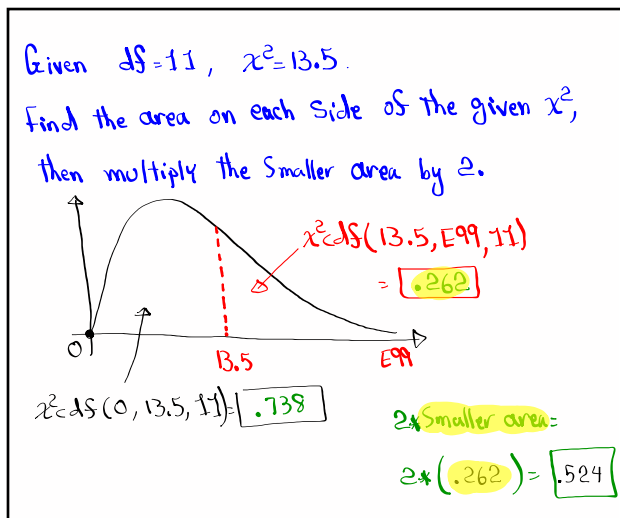 Given df=11, χ²=13.5.
Find the area on each side of the given χ²,
then multiply the Smaller area by 2.
χ²cdf(13.5,E99,11)
= .262
0
13.5
E99
χ²cdf(0,13.5,11)= .738
2*Smaller area=
2*(.262)= .524